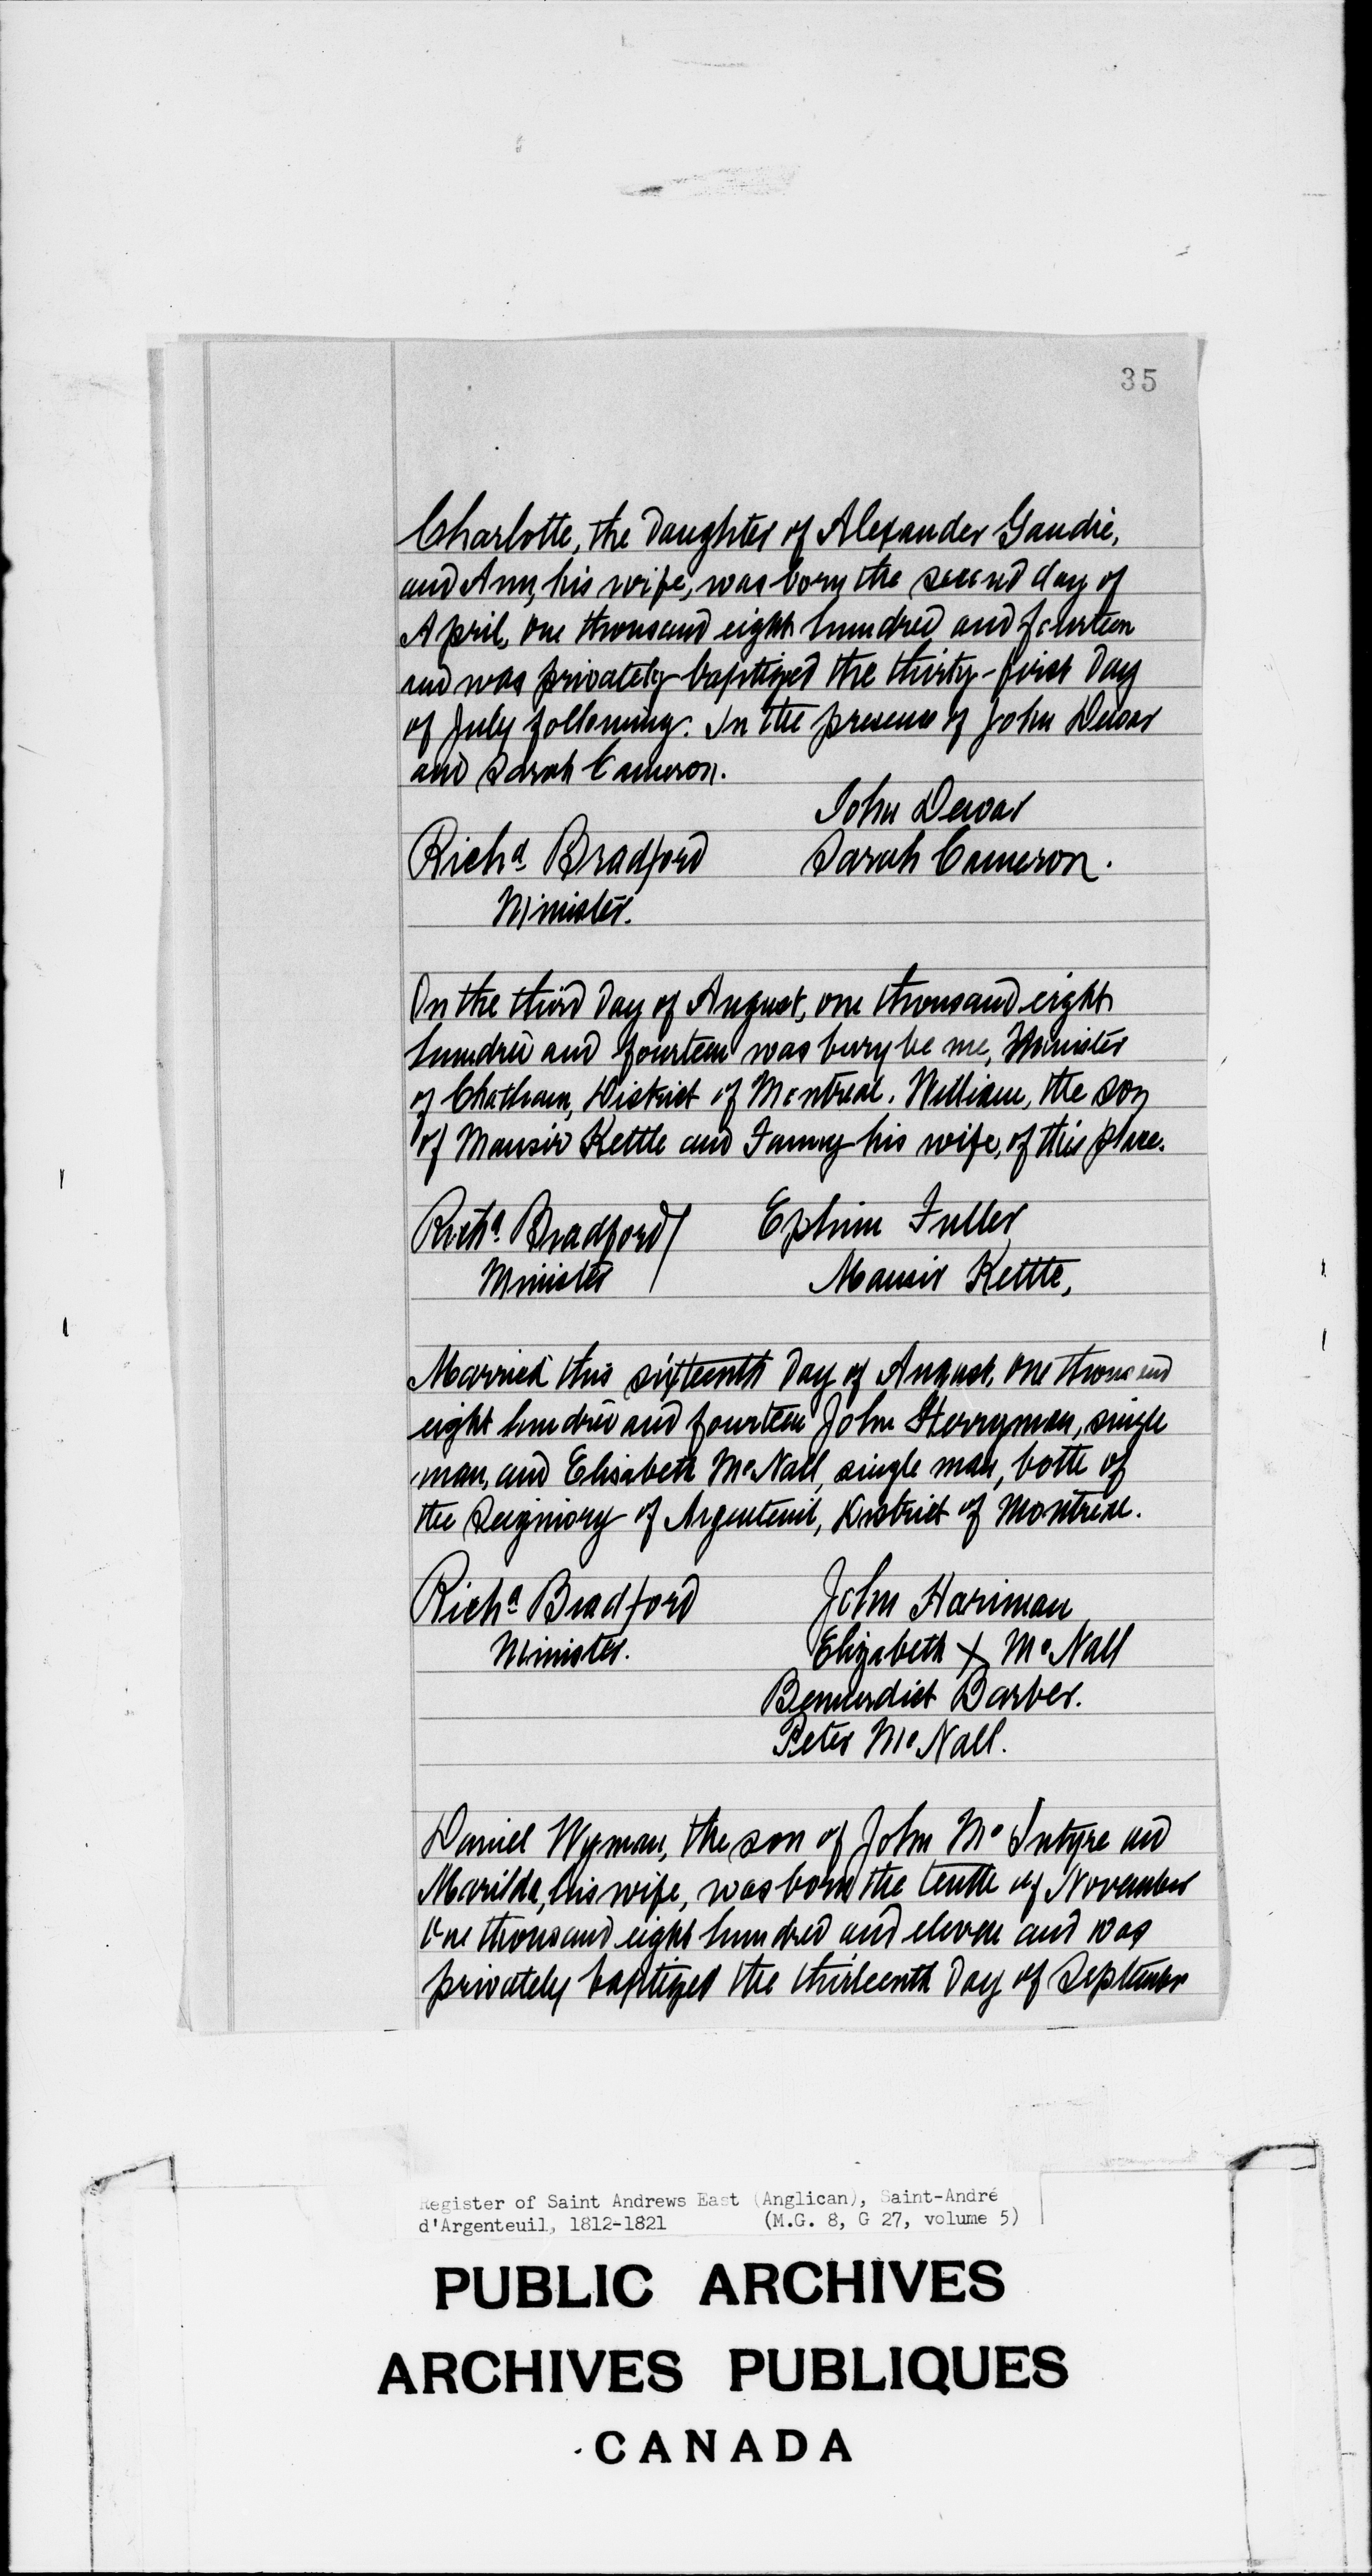 35
Charlotte, the Daughter of Alexander Gaudie,
and Ann, his wife, was born the second day of
April, one thousand eight hundred and fourteen
and was privately baptized the thirty-first Day
of July following. In the presence of John Dewar
and Sarah Cameron.
John Dewar
Richd Bradford Sarah Cameron.
Minister.
On the third Day of August, one thousand eight
hundred and fourteen was bury be me, Minister
of Chatham, District of Montreal. William, the son
of Mansir Kettle and Fanny his wife, of this place.
Richd Bradford / Ephrim Fuller
Minister Mansir Kettle,
Married this sixteenth Day of August, one thousand
eight hundred and fourteen John Herryman, single
man, and Elisabeth McNall, single man, both of
the Seigniory of Argenteuil, District of Montreal.
Richd Bradford John Hariman
Minister. Elizabeth X McNall
Bennerdict Barber.
Peter McNall.
Daniel Wyman, the son of John McIntyre and
Marilda, his wife, was born the tenth of November
One thousand eight hundred and eleven and was
privately baptized the thirteenth Day of September
Register of Saint Andrews East (Anglican), Saint-André
d'Argenteuil, 1812-1821 (M.G. 8, G 27, volume 5)
PUBLIC ARCHIVES
ARCHIVES PUBLIQUES
CANADA